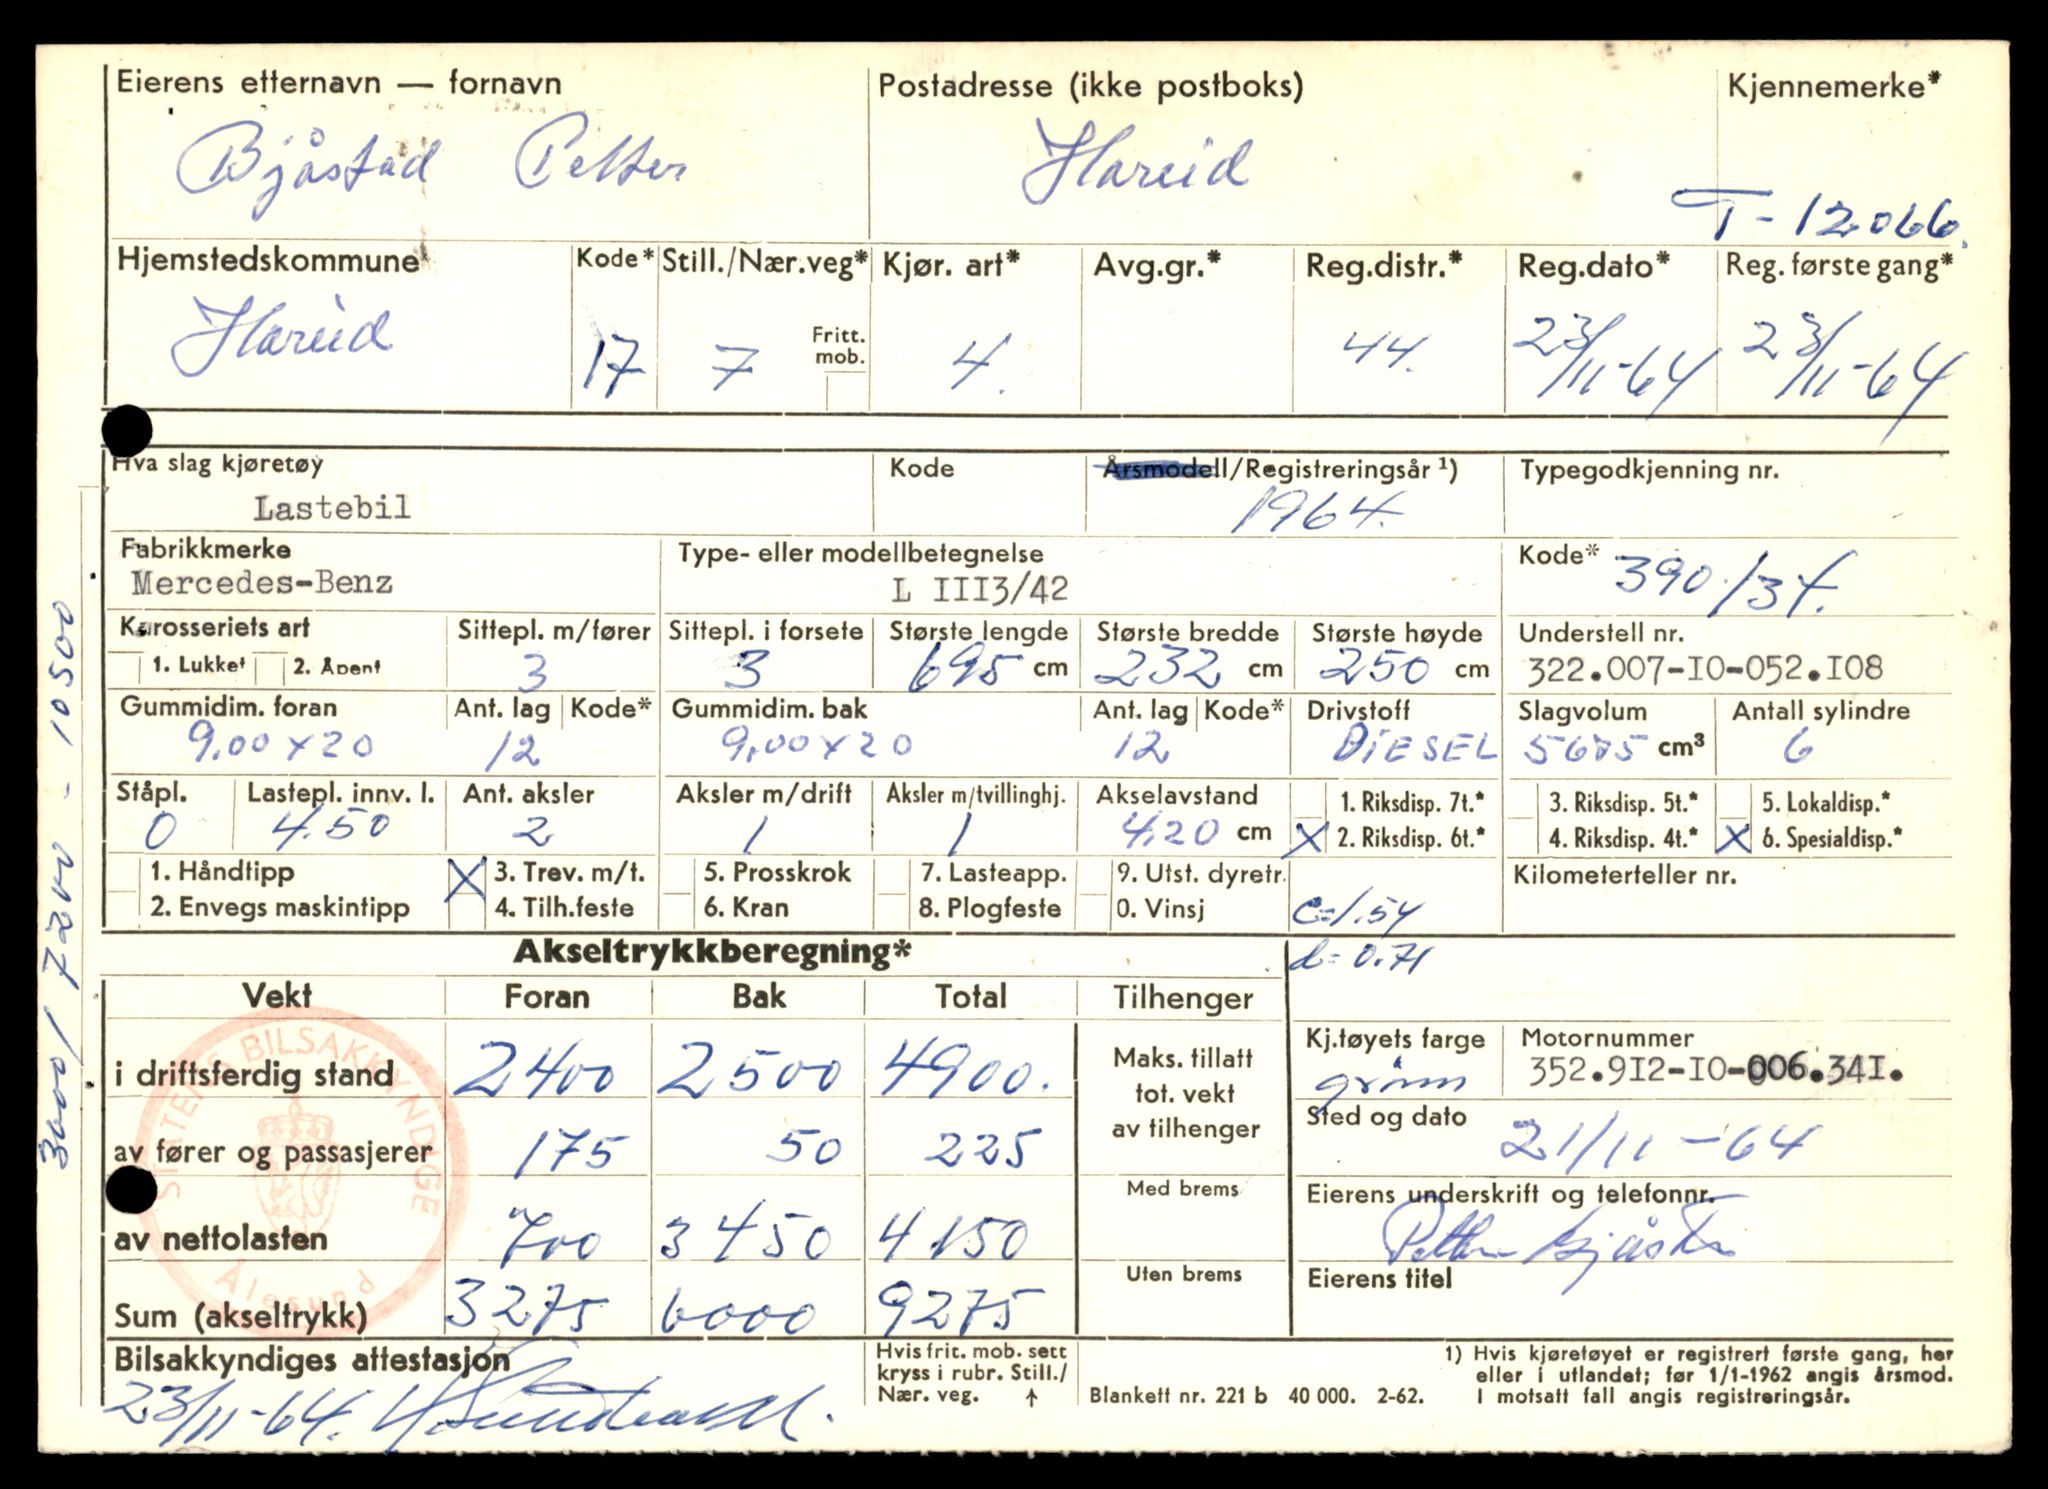 Eierens etternavn — fornavn
Bjåstad Petter
Postadresse (ikke postboks)
Hareid
Kjennemerke*
T-12066.
Hjemstedskommune
Hareid
Kode*
17
Still./Nær.veg*
7
Fritt. mob.
Kjør. art*
4.
Avg.gr.*
Reg.distr.*
44.
Reg.dato*
23/11-64
Reg. første gang*
23/11-64
Hva slag kjøretøy
Lastebil
Kode
Årsmodell/Registreringsår ¹)
1964.
Typegodkjenning nr.
Fabrikkmerke
Mercedes-Benz
Type- eller modellbetegnelse
L III3/42
Kode*
390./34.
Karosseriets art
1. Lukket 2. Åpent
Sittepl. m/fører
3
Sittepl. i forsete
3
Største lengde
695 cm
Største bredde
232 cm
Største høyde
250 cm
Understell nr.
322.007-IO-052.IO8
Gummidim. foran
9,00 x 20
Ant. lag
12
Kode*
Gummidim. bak
9,00 x 20
Ant. lag
12
Kode*
Drivstoff
DIESEL
Slagvolum
5675 cm³
Antall sylindre
6
Ståpl.
0
Lastepl. innv. l.
4.50
Ant. aksler
2
Aksler m/drift
1
Aksler m/tvillinghj.
1
Akselavstand
420 cm
1. Riksdisp. 7t.*
X 2. Riksdisp. 6t.*
3. Riksdisp. 5t.*
4. Riksdisp. 4t.*
5. Lokaldisp.*
X 6. Spesialdisp.*
1. Håndtipp
2. Envegs maskintipp
X 3. Trev. m/t.
4. Tilh.feste
5. Prosskrok
6. Kran
7. Lasteapp.
8. Plogfeste
9. Utst. dyretr.
0. Vinsj
c=1.54
d=0.71
Kilometerteller nr.
Akseltrykkberegning*
Vekt Foran Bak Total Tilhenger
i driftsferdig stand 2400 2500 4900.
av fører og passasjerer 175 50 225
av nettolasten 700 3450 4150
Sum (akseltrykk) 3275 6000 9275
Maks. tillatt
tot. vekt
av tilhenger
Med brems
Uten brems
Kj.tøyets farge
grønn
Motornummer
352.9I2-IO-006.34I.
Sted og dato
21/11-64
Eierens underskrift og telefonnr.
Petter Bjåstad
Eierens titel
STATENS BILSAKKYNDIGE
Ålesund
Bilsakkyndiges attestasjon
23/11-64.
Hvis frit. mob. sett
kryss i rubr. Still./
Nær. veg. ↑
Blankett nr. 221 b 40 000. 2-62.
1) Hvis kjøretøyet er registrert første gang, her
eller i utlandet; før 1/1-1962 angis årsmod.
I motsatt fall angis registreringsår.